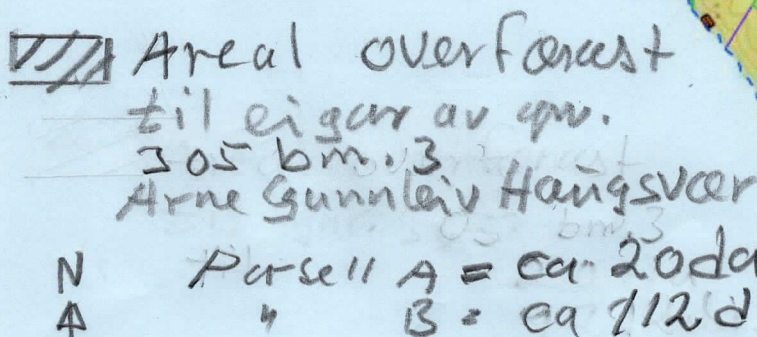 Areal overføres
til eigar av gnr.
305 bnr. 3
Arne Gunnleiv Haugsvær
N Parsell A = ca 20da
" B = ca 112 d